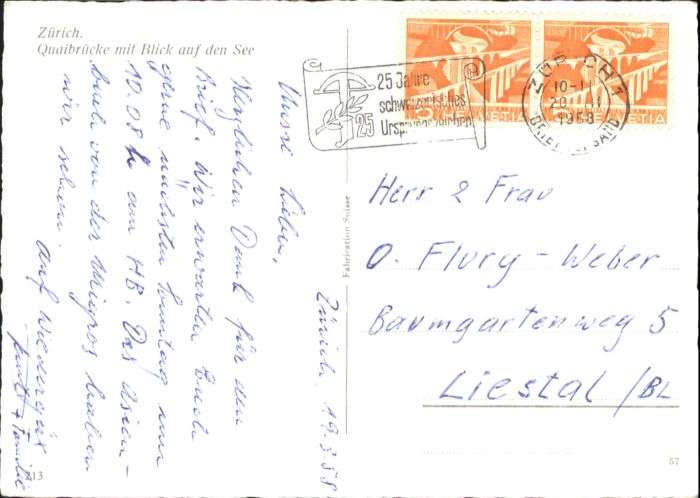 Zürich.
Quaibrücke mit Blick auf den See
25 Jahre
schweizerisches
Ursprungszeichen
25
5 HELVETIA
HELVETIA
10-1
1958
BRIEFVERSAND
Fabrication Suisse
Zürich, 19.3.58
Unsre Lieben,
Herzlichen Dank für den
Brief. Wir erwarten Euch
gerne nächsten Sonntag um
10.08 h am HB. Das Asien-
buch von der Migros haben
wir schon.
Auf Wiedersehen
+ Familie
Herr & Frau
O. Flury-Weber
Baumgartenweg 5
Liestal / BL
13
57